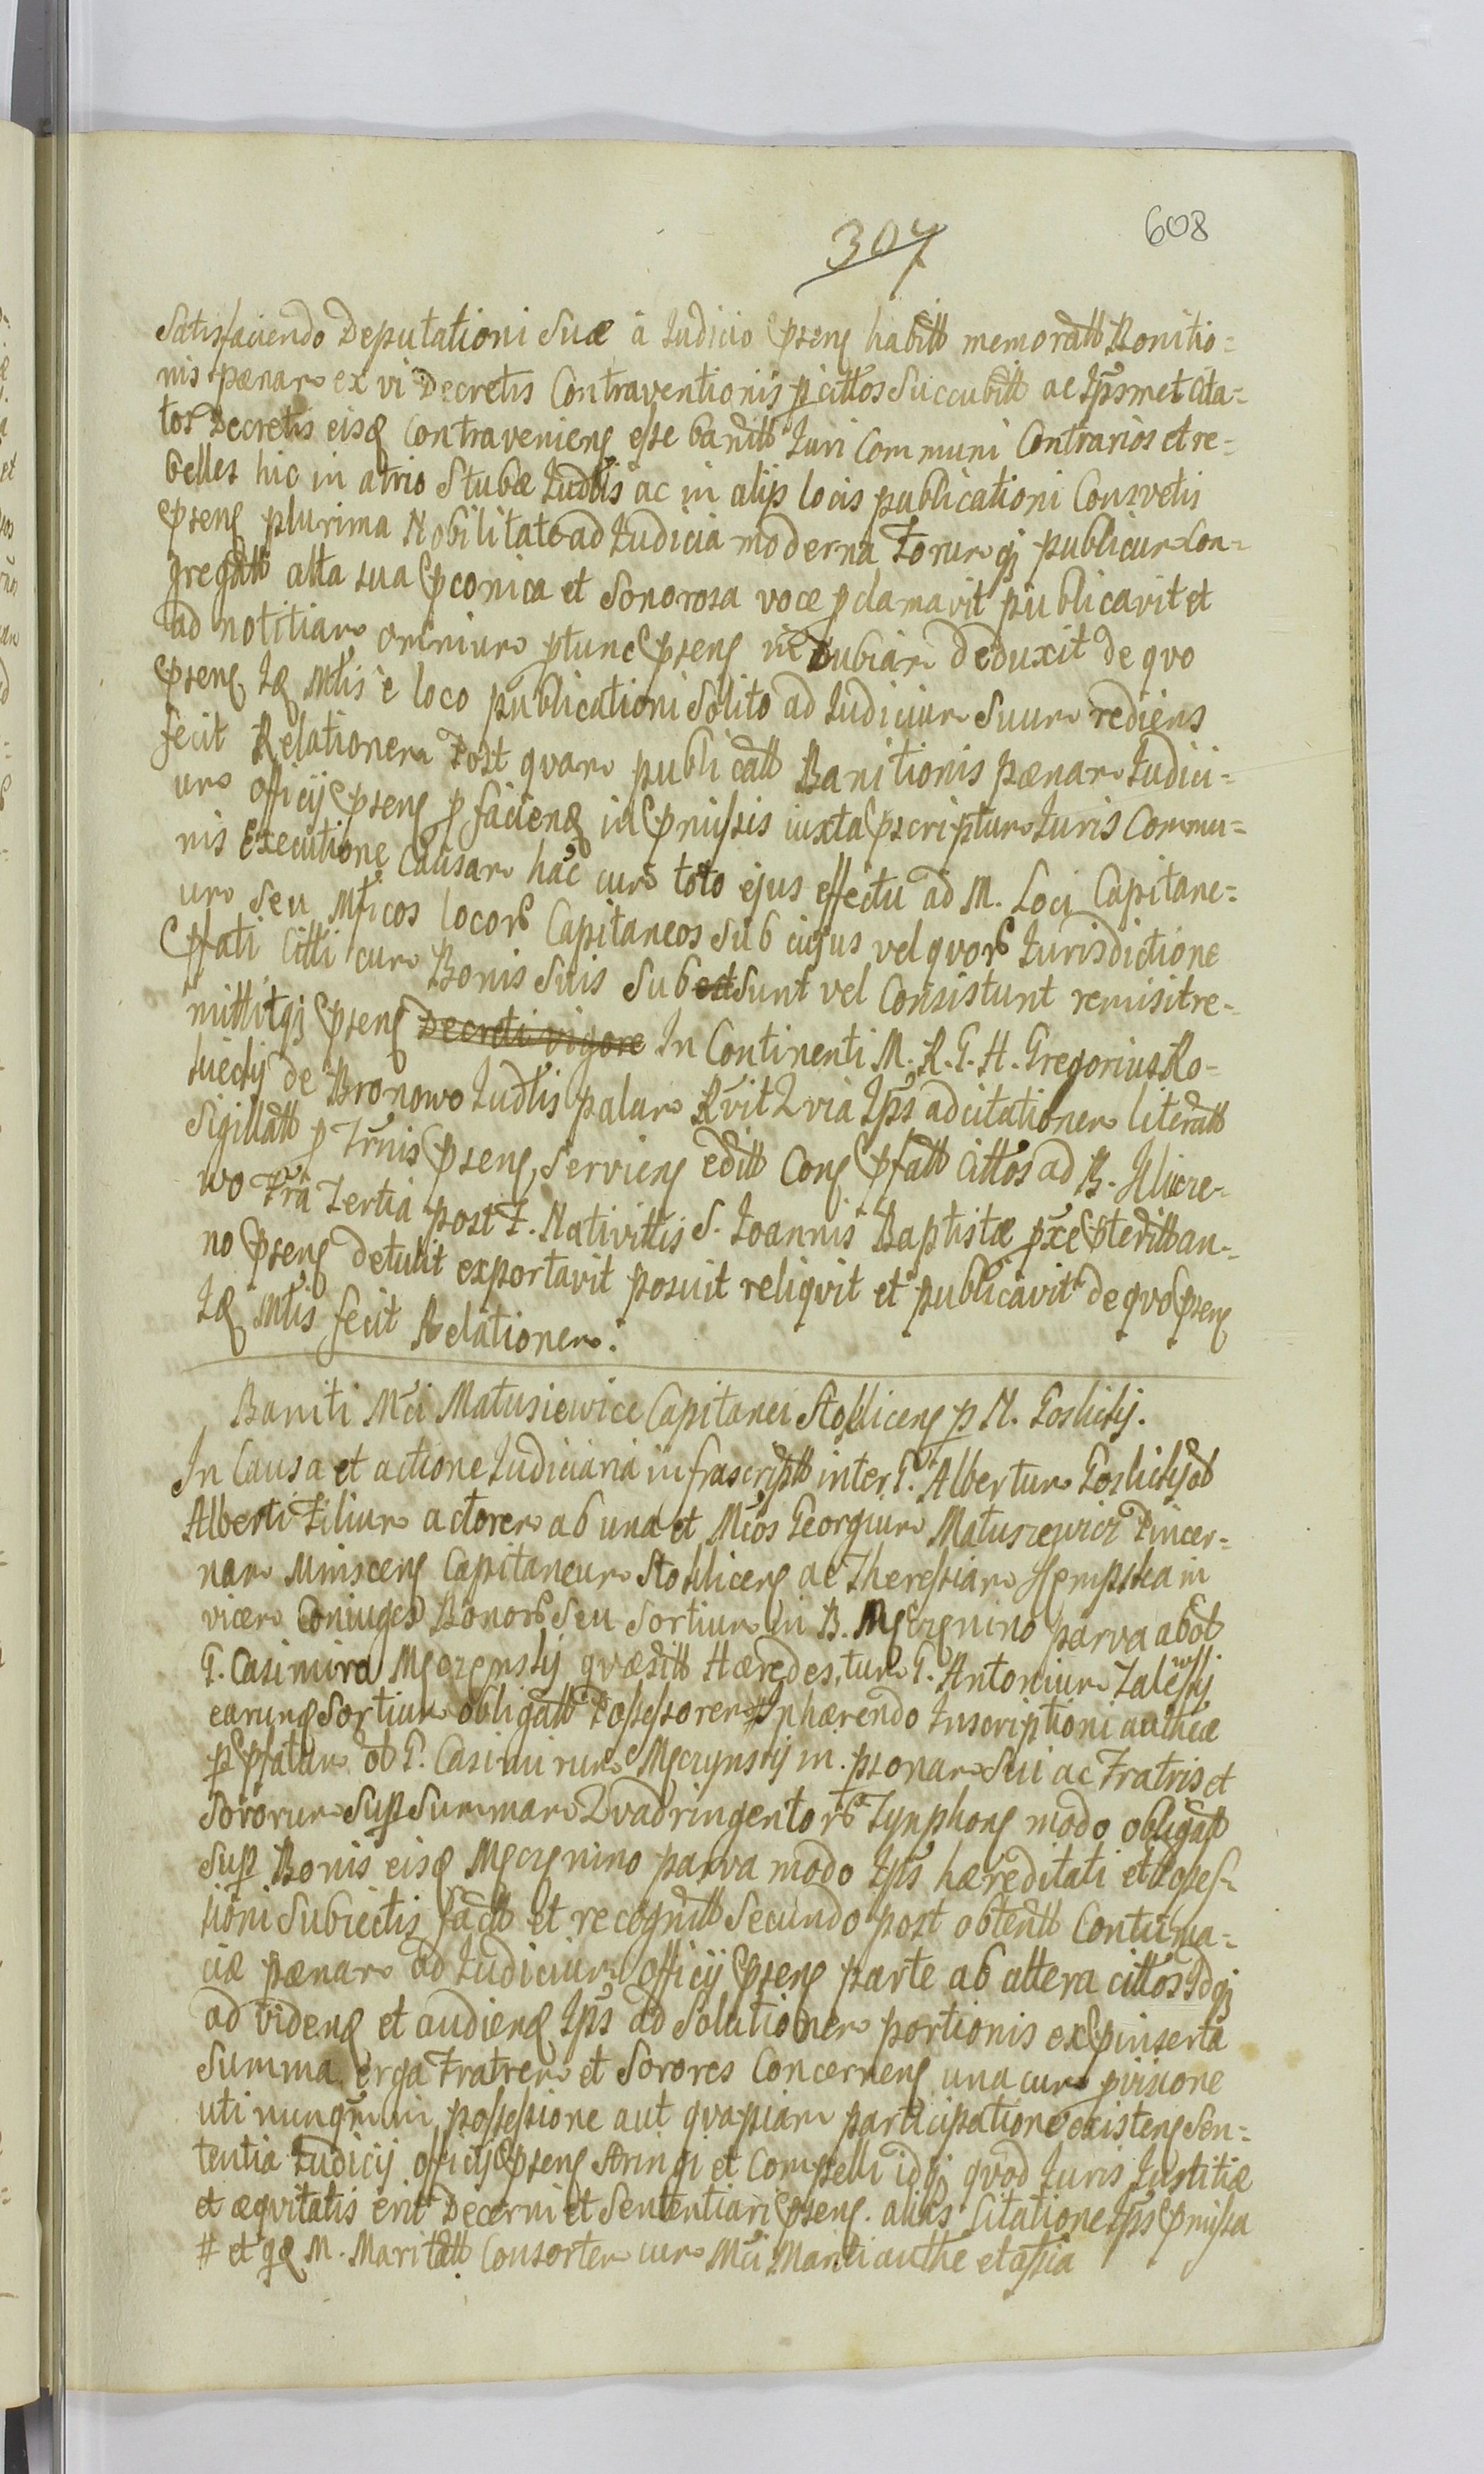 307
608
Satisfaciendo Deputationi Suæ à Judicio pseng habitt memoratt Bonitio=
nis pænam ex vi Decretis Contraventionis p cittos Succubitt ac Ipsmet Cita=
tos Decretis eisq Contravenieng esse banitt Juri Communi Contrarios et re=
belles hic in atrio Stubæ Judlis ac in alijs locis publicationi Consvetis
pseng plurima Nobilitate ad Judicia moderna Forumqj publicum Con=
gregatt alta sua pconica et Sonorosa voce pclamavit publicavit et
ad notitiam omnium ptunc pseng indubiam deduxit de qvo
pseng Iq Mtis è loco publicationi Solito ad Judicium Suum rediens
fecit Relationem Post qvam publicatt Banitionis pænam Judici=
um Officij pseng p facienq in pmissis iuxta pscriptum Juris Commu=
nis Executione Causam hac cum toto ejus effectu ad M. Loci Capitane=
um seu Mficos locorb Capitaneos Sub cujus vel qvorb Jurisdictione
pfati Citti cum Bonis Suis Subsunt vel Consistunt remisit re=
mittitqj pseng Decreti vigore In Continenti M. R. G. H. Gregorius Ro=
de Bronowo Judlis palam Rvit Qvia Ips ad citationem literatt
Sigillatt p Trnis pseng, Servieng editt Cong pfatt Cittos ad B.
wo Fra Tertia post F. Nativittis S. Joannis Baptistæ pxe pteritt an=
no pseng detulit exportavit posuit reliqvit et publicavit de qvo pseng
Iq Mtis fecit Relationem.
Baniti Mci Matusiewice Capitanei Stokliceng p N. Goslickij.
In Causa et actione Judiciaria infrascriptt inter G. Albertum Goslickij ol
Alberti Filium actorem ab una et Mcos Georgium Matusiewicz Pincer=
nam Minsceng Capitaneum Stokliceng ac Theressiam Hempska in
vicem Coniuges Bonorb Seu Sortium in B. Męczęnino parva ab ol
G. Casimiro Męczęnskij qvæsitt Hæredes, tum G. Antonium Zalewskij
earunq Sortium obligatt Possessorem Inhærendo Inscriptioni autheæ
p pfatum ol G. Casimirum Męczynskij in. psonam Sui ac Fratris et
Sororum Sup Summam Qvadringentorb Tynphong modo obligatt
Sup Bonis eisq Męczęnino parva modo Ips hæreditati et Posses=
sioni Subiectis factt et recognitt Secundo post obtentt Contuma=
ciæ pænam ad Judicium Officij pseng parte ab altera cittos Idqj
ad videnq et audienq Ips ad Solutionem portionis ex pinserta
Summa erga Fratrem et Sorores Concerneng una cum pvisione
uti nunqm in possessione aut qvapiam participatione existeng Sen=
tentia Judicij Officij pseng Stringi et Compelli idqj qvod Juris Justitiæ
et æqvitatis erit Decerni et Sententiari pseng. alias Citatione Ips pmissa
# et qq M. Maritatt Consortem cum Mci Mariti authe et assia